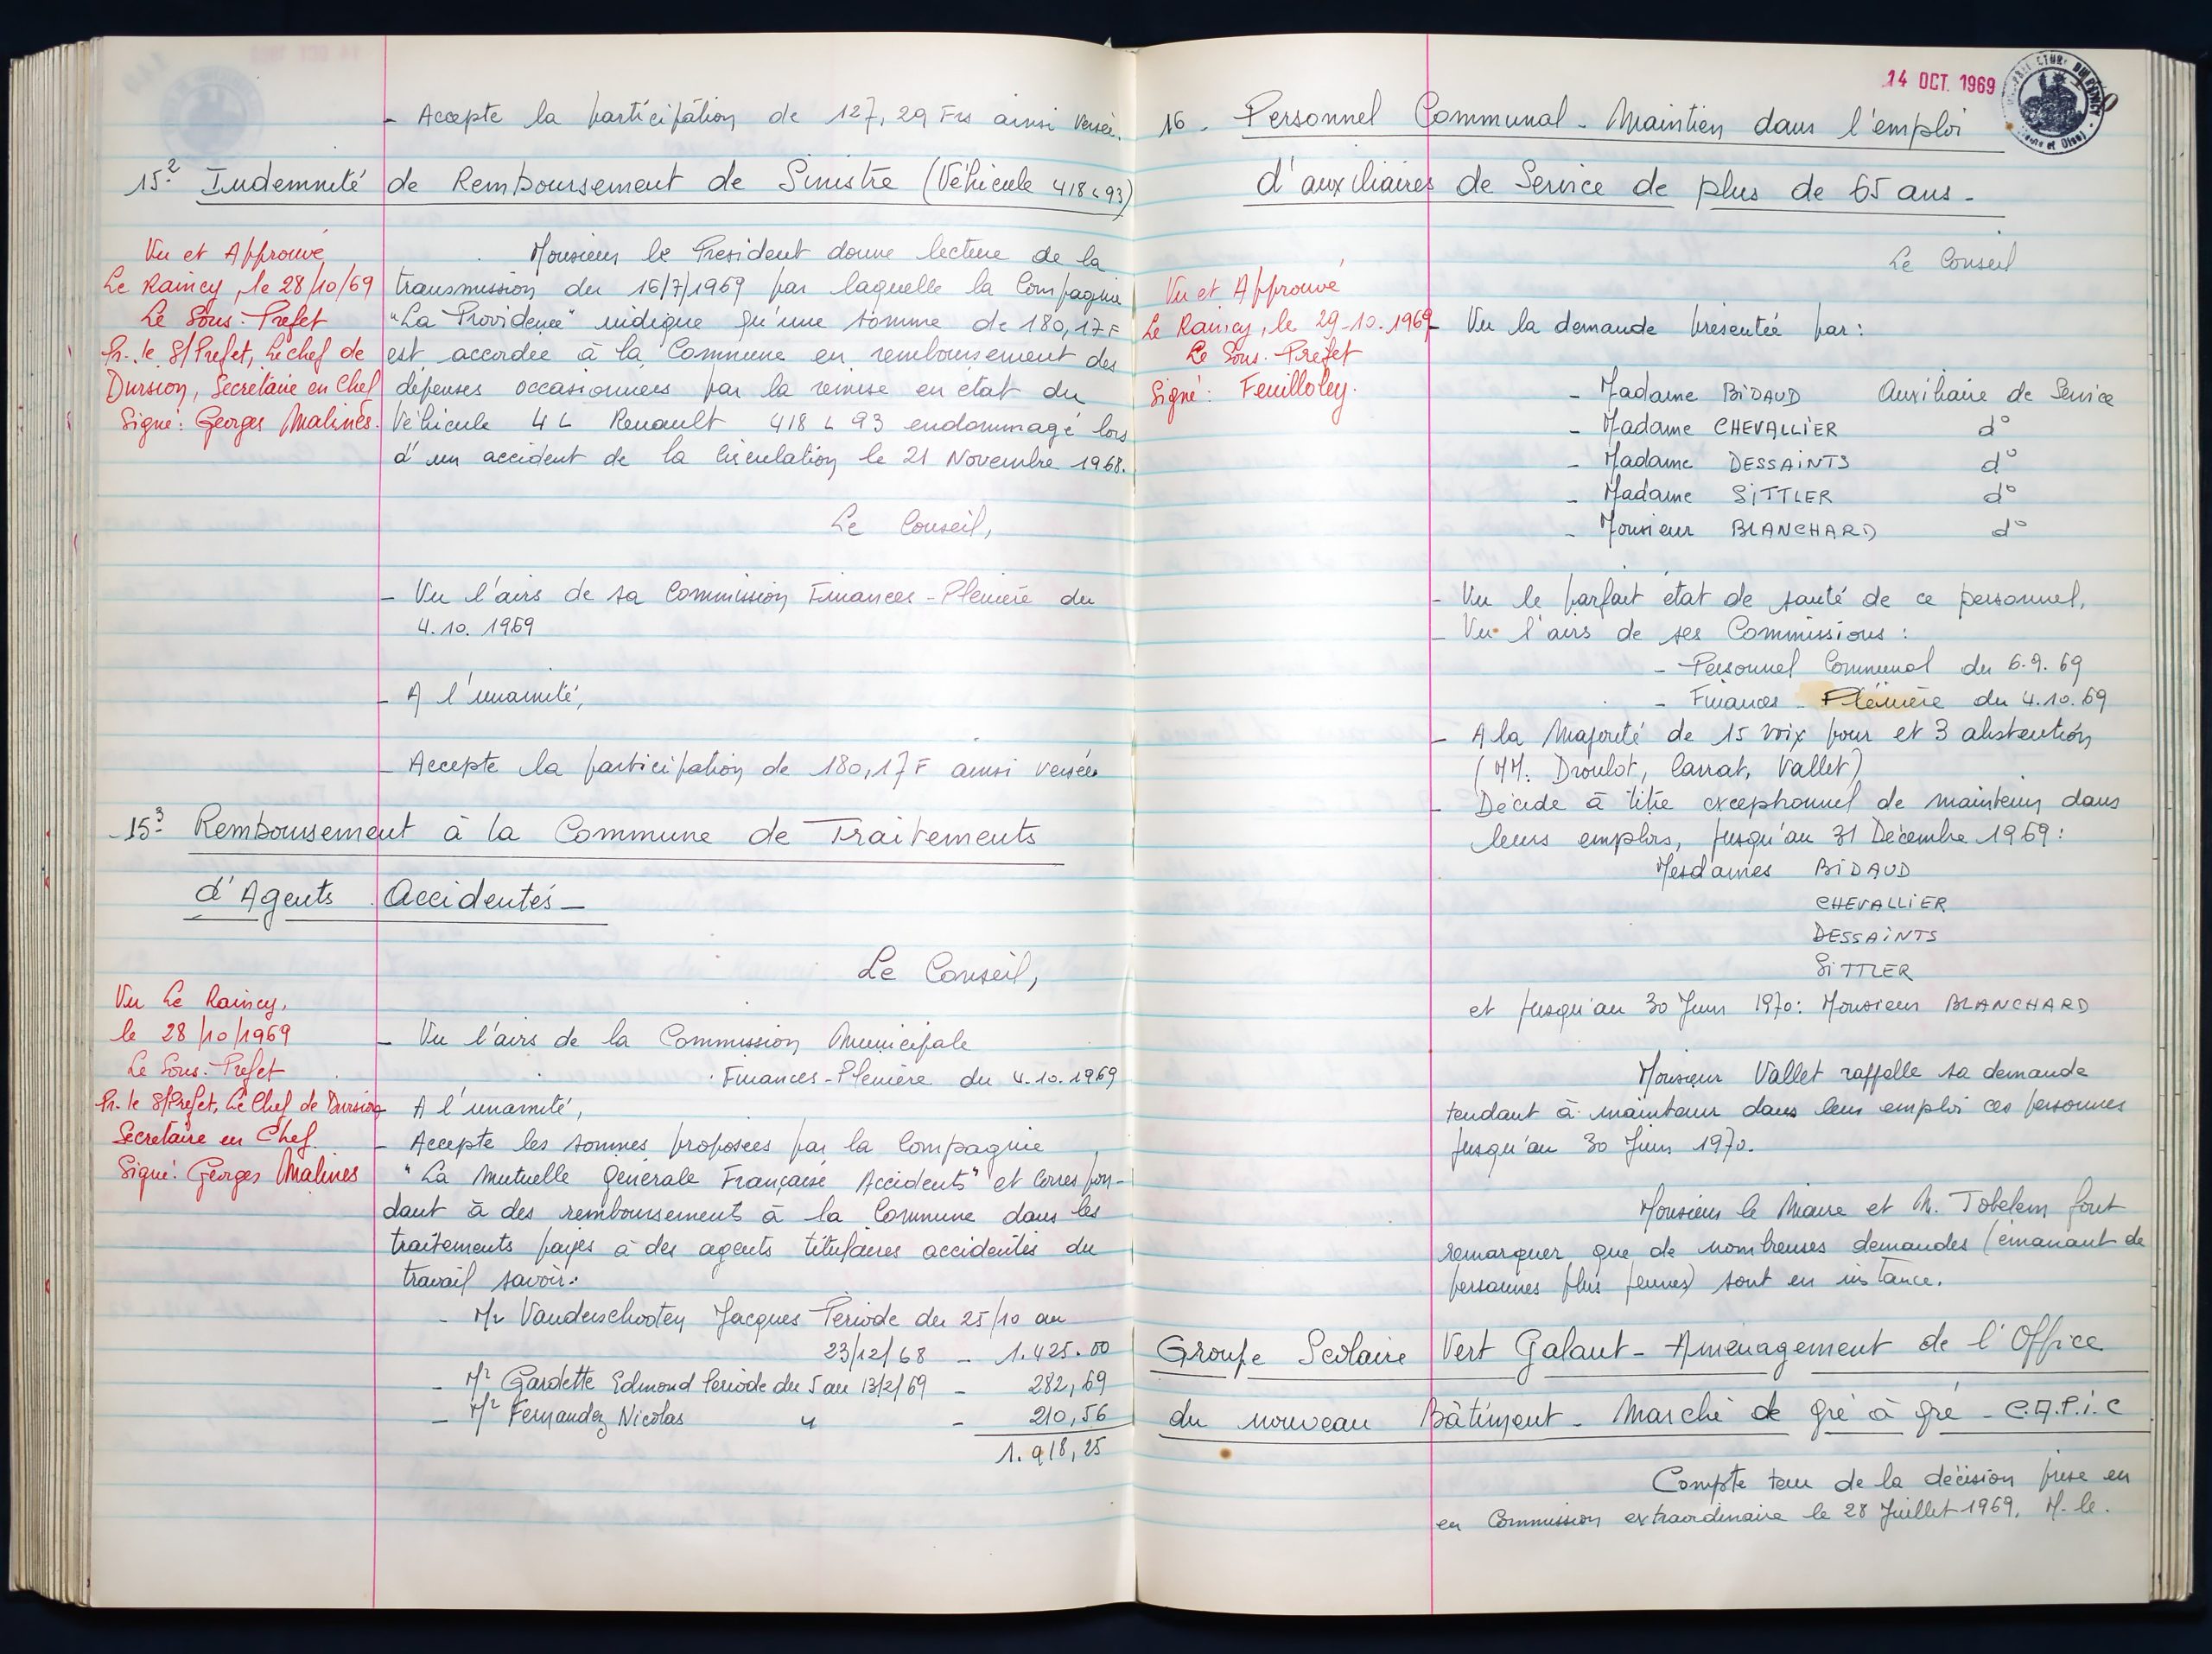 - Accepte la participation de 127,29 Frs ainsi versée.
15.² Indemnité de Remboursement de Sinistre (Véhicule 418 L 93)
Vu et Approuvé
Le Raincy, le 28/10/69
Le Sous-Préfet
Pr. le S/Préfet, Le chef de
Dursion, Secrétaire en Chef
Signé: Georges Malines.
Monsieur le Président donne lecture de la
transmission du 16/7/1969 par laquelle la Compagnie
"La Providence" indique qu'une somme de 180,17 F
est accordée à la Commune en remboursement des
dépenses occasionnées par la remise en état du
Véhicule 4 L Renault 418 L 93 endommagé lors
d'un accident de la circulation le 21 Novembre 1968.
Le Conseil,
- Vu l'avis de sa Commission Finances-Plénière du
4.10.1969
- A l'unamité,
- Accepte la participation de 180,17 F ainsi versée
15.³ Remboursement à la Commune de Traitements
d'Agents Accidentés -
Le Conseil,
Vu Le Raincy,
le 28/10/1969
Le Sous-Préfet
Pr. le S/Préfet, Le Chef de Dursion
Secrétaire en Chef
Signé: Georges Malines
- Vu l'avis de la Commission Municipale
Finances-Plénière du 4.10.1969
A l'unamité,
- Accepte les sommes proposées par la Compagnie
"La Mutuelle Générale Française Accidents" et corres pon-
dant à des remboursements à la Commune dans les
traitements payés à des agents titulaires accidentés du
travail savoir:
- Mr Vanderschooten Jacques Période du 25/10 au
23/12/68 - 1.425.00
- Mr Gardette Edmond Période du 5 au 13/2/69 - 282,69
- Mr Fernandez Nicolas " - 210,56
1.918,25
14 OCT. 1969
16 - Personnel Communal - Maintien dans l'emploi
d'auxiliaires de Service de plus de 65 ans -
Le Conseil
Vu et Approuvé
Le Raincy, le 29-10-1969
Le Sous-Préfet
Signé: Feuilloley.
- Vu la demande présentée par:
- Madame BIDAUD Auxiliaire de Service
- Madame CHEVALLIER d°
- Madame DESSAINTS d°
- Madame SITTLER d°
- Monsieur BLANCHARD d°
- Vu le parfait état de santé de ce personnel,
- Vu l'avis de ses Commissions:
- Personnel Communal du 6.9.69
- Finances - Plénière du 4.10.69
- A la Majorité de 15 voix pour et 3 abstention
(MM. Droulot, Carrat, Vallet)
- Décide à titre exceptionnel de maintenir dans
leurs emplois, jusqu'au 31 Décembre 1969:
Mesdames BIDAUD
CHEVALLIER
DESSAINTS
SITTLER
et jusqu'au 30 Juin 1970: Monsieur BLANCHARD
Monsieur Vallet rappelle sa demande
tendant à maintenir dans leur emploi ces personnes
jusqu'au 30 Juin 1970.
Monsieur le Maire et M. Tobelem font
remarquer que de nombreuses demandes (émanant de
personnes plus jeunes) sont en instance.
Groupe Scolaire Vert Galant - Aménagement de l'Office
du nouveau Bâtiment - Marché de gré à gré - C.A.P.I.C
Compte tenu de la décision prise en
en Commission extraordinaire le 28 Juillet 1969, M. le.